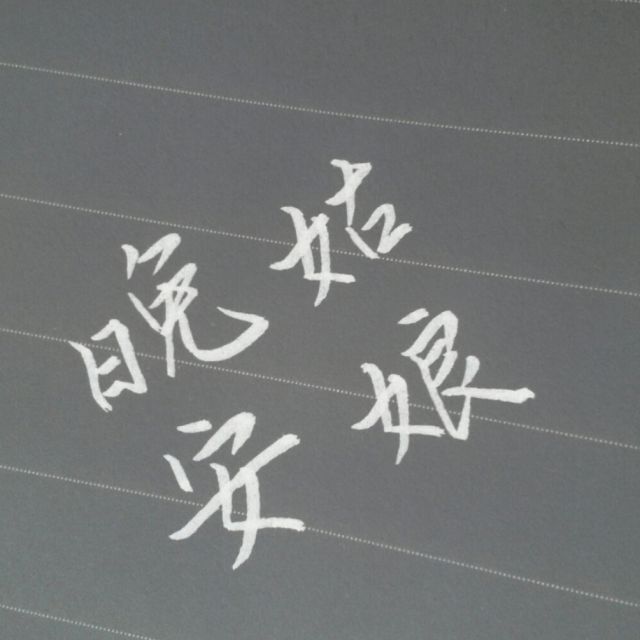 姑娘
晚安